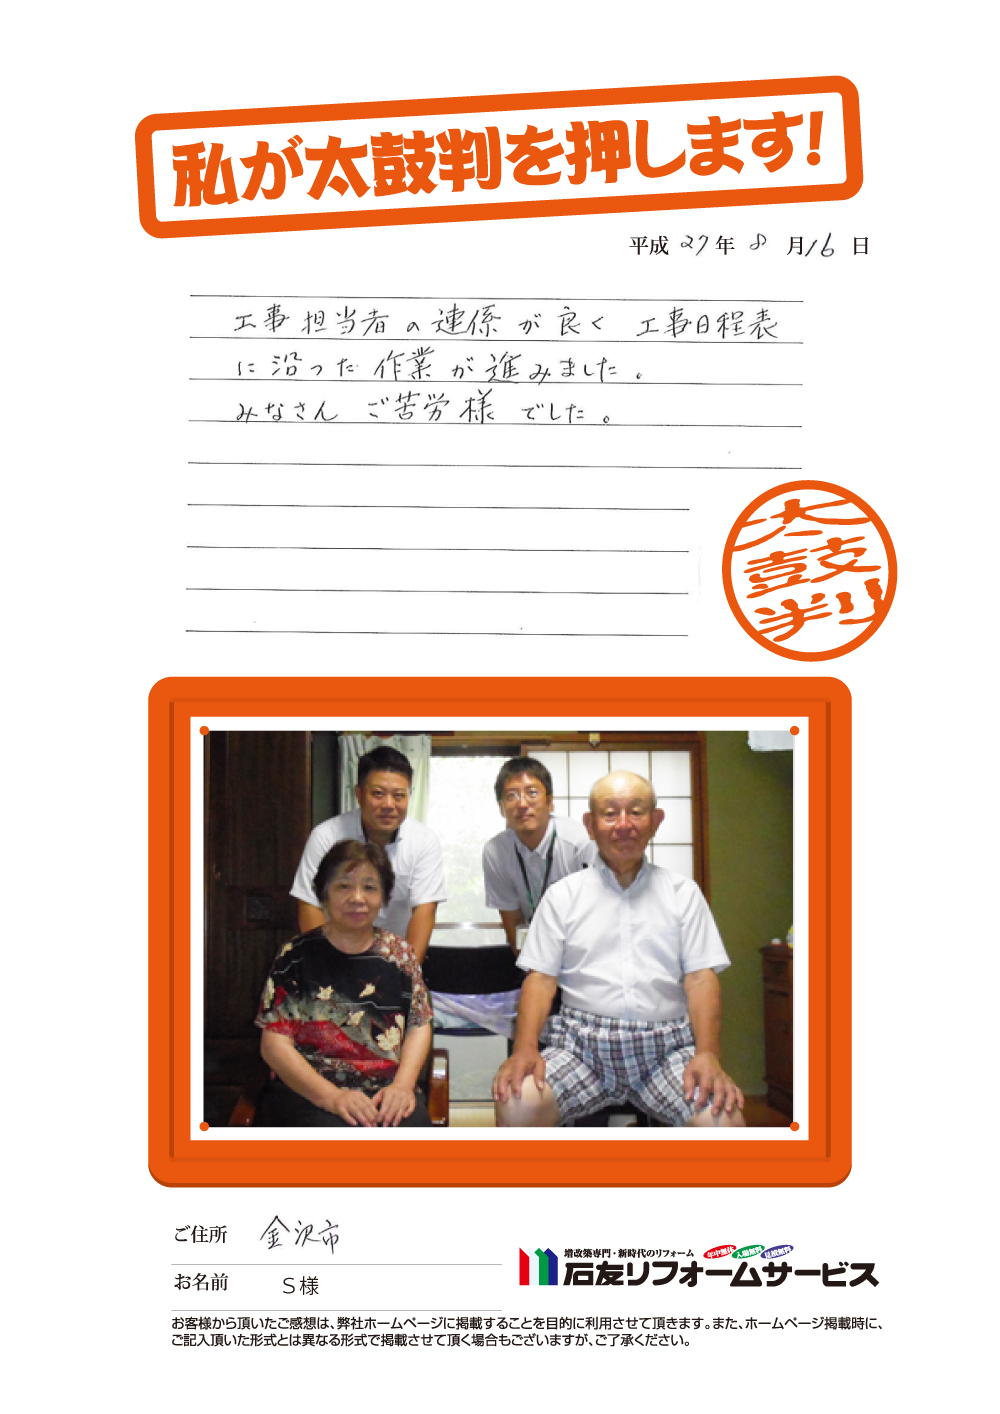 私が太鼓判を押します!
平成27年8月16日
工事担当者の連係が良く 工事日程表
に沿った作業が進みました。
みなさん ご苦労様でした。
太鼓判
ご住所 金沢市
お名前 S様
増改築専門・新時代のリフォーム 年中無休 入場無料 見積無料
石友リフォームサービス
お客様から頂いたご感想は、弊社ホームページに掲載することを目的に利用させて頂きます。また、ホームページ掲載時に、
ご記入頂いた形式とは異なる形式で掲載させて頂く場合もございますが、ご了承ください。